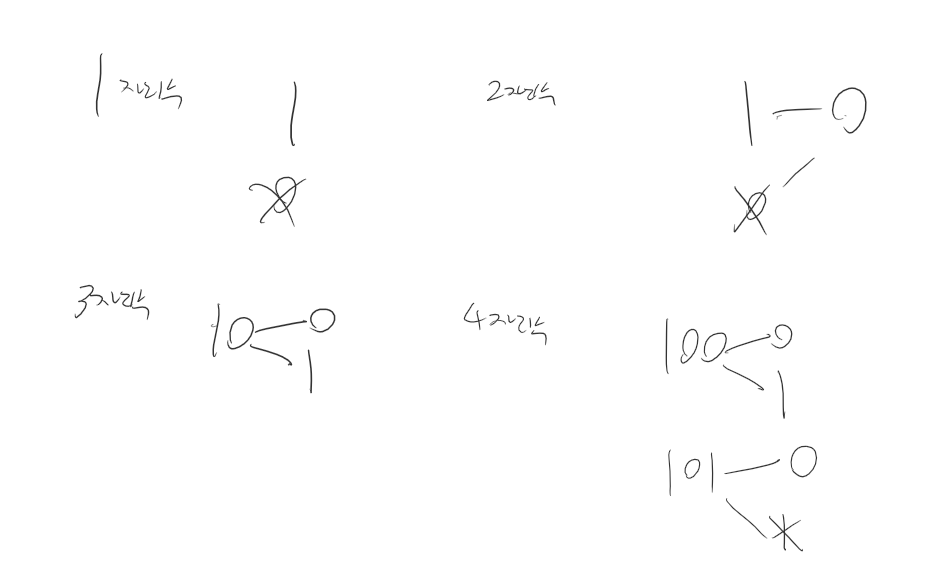 1자리수
1
0
2자리수
1 0
0
3자리수
10 0
1
4자리수
100 0
1
101 0